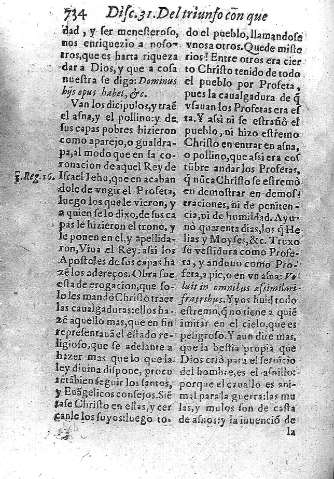 734 Disc.31. Del triunfo cõn que
dad, y ser menesteroso,
nos enriquezio a noso-
tros, que es harta riqueza
dar a Dios, y que a cosa
nuestra se diga: Dominus
hijs opus habet, &c.
Van los dicipulos, y traẽ
el asna, y el pollino: y de
sus capas pobres hizieron
como aparejo, o gualdra-
pa, al modo que en la co-
ronacion de aquel Rey de
Israel Jehu, que en acaban
dole de vngir el Profeta,
luego los que le vieron, y
a quien se lo dixo, de sus ca
pas le hizieron el trono, y
le ponen en el, y apellida-
ron, Viva el Rey: assi los
Apostoles de sus capas ha
zẽ los adereços. Obra fue
esta de erogacion, que so-
lo les mandò Christo traer
las caualgaduras: ellos ha-
zẽ aquello mas, que en fin
representauã el estado re-
ligioso, que se adelante a
hazer mas que lo que la
ley diuina dispone, procu
rã tãbien seguir los santos,
y Euãgelicos consejos. Siẽ
tase Christo en estas, y cer
canle los suyos: luego to-
4. Reg. 16.
do el pueblo, llamandose
vnos a otros. Que de miste
rios! Entre otros era cier
to Christo tenido de todo
el pueblo por Profeta,
pues la caualgadura de q̃
vsauan los Profetas era es
ta. Y assi ni se estrañò el
pueblo, ni hizo estremo
Christo en entrar en asna,
o pollino, que assi era cos
tũbre andar los Profetas,
q̃ nũca Christo se estremò
en demostrar en demostra
raciones, ni de peniten-
cia, ni de humildad. Ayu-
nò quarenta dias, los q̃ He
lias y Moyses, &c. Truxo
su vestidura como Profe-
ta, y anduuo como Profe
ta, a pie, o en vn asna. Ve
luit in omnibus assimilari
fratribus. Y vos huid todo
estremo, q̃ no tiene a quiẽ
imitar en el cielo, que es
peligroso. Y aun dize mas,
que la bestia propia que
Dios criò para el seruicio
del hombre, es el asnillo:
porque el cauallo es ani-
mal para la guerra: las mu
las, y mulos son de casta
de asnos: y la inuenciõ de
la